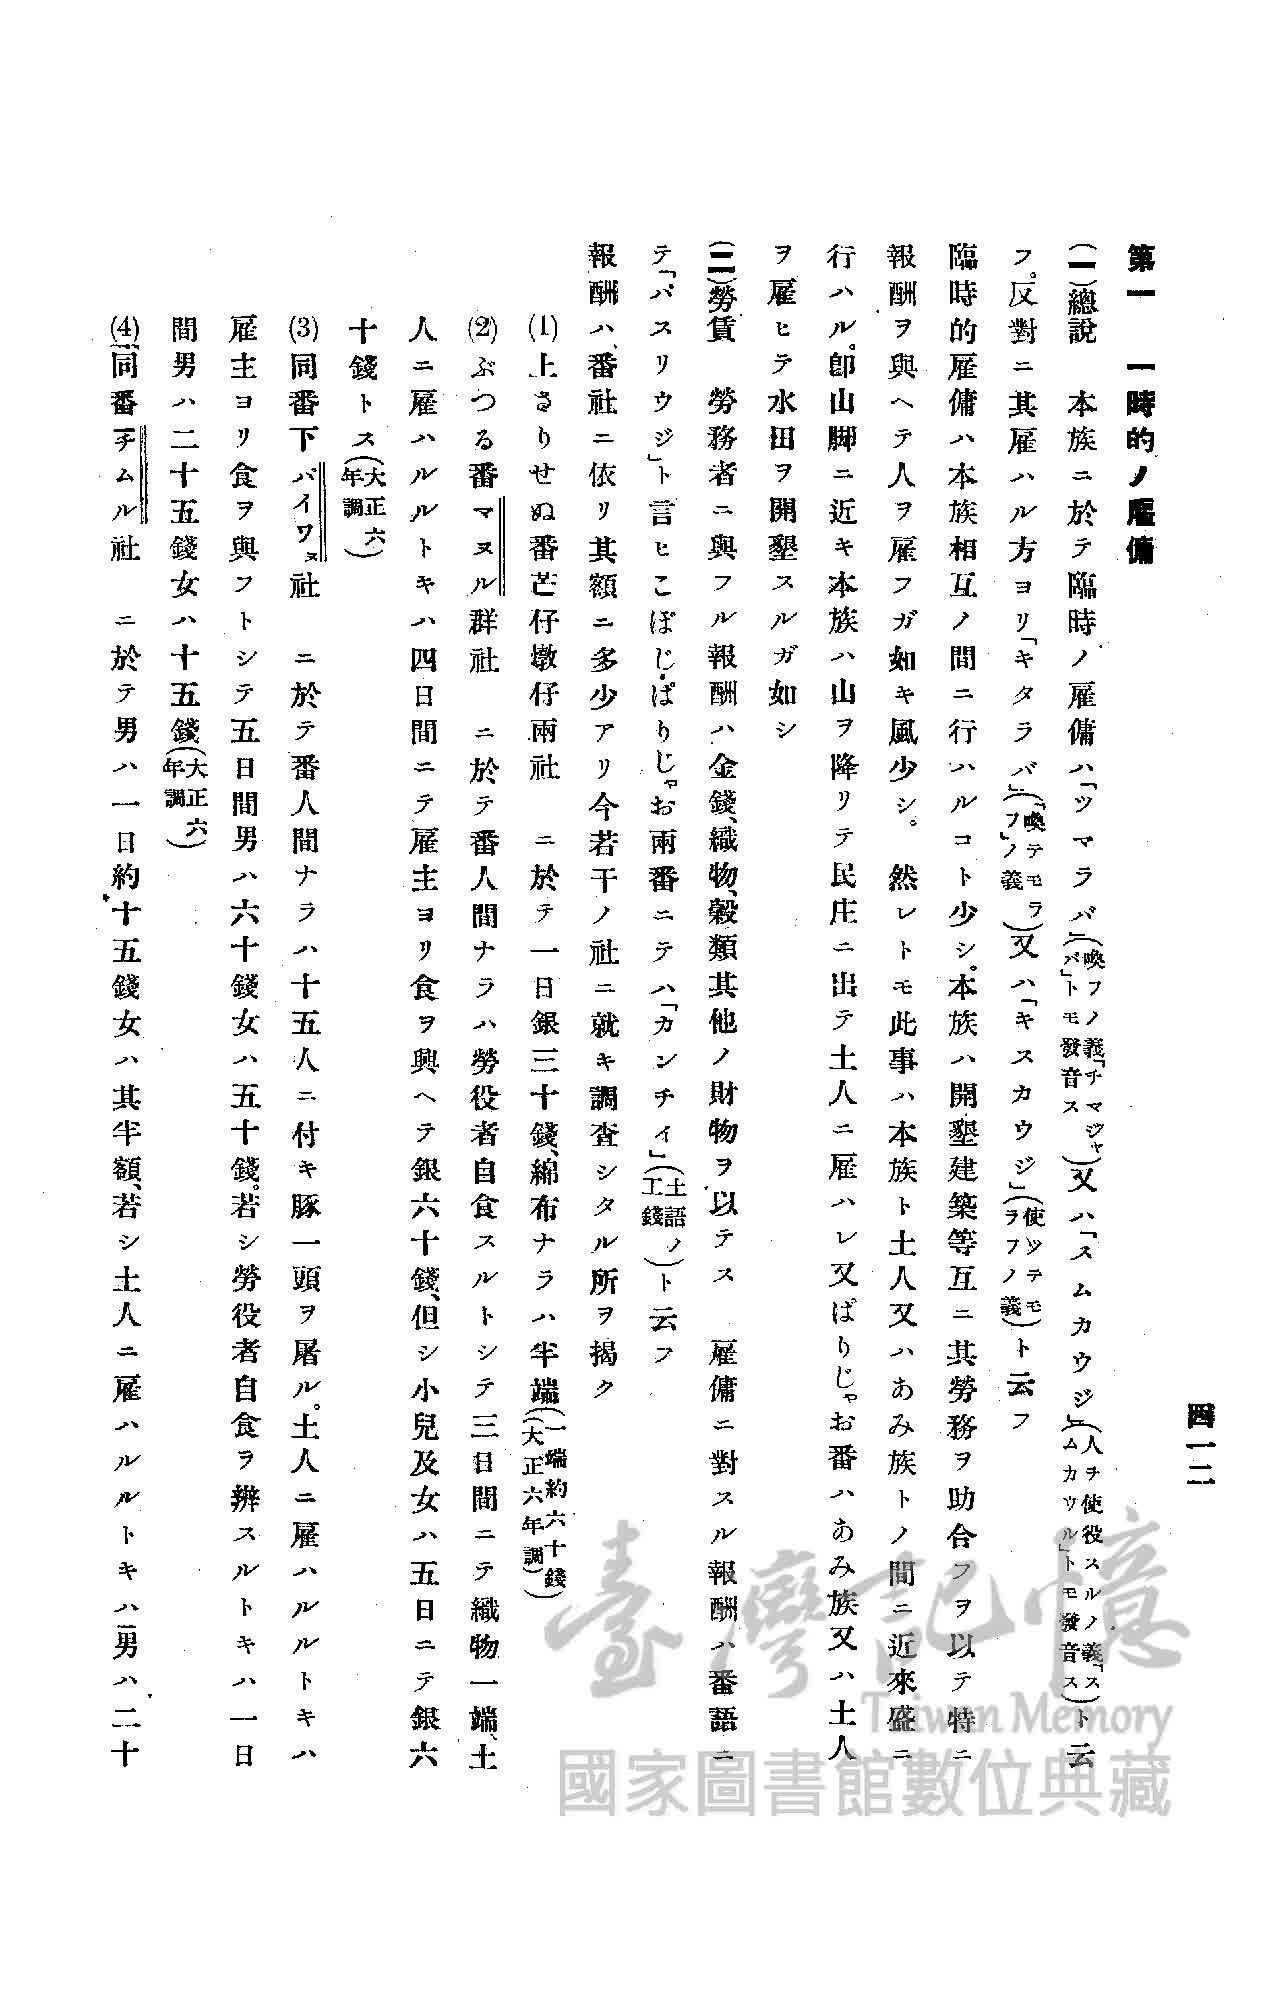 四一二
第一　一時的ノ雇傭
(一)總說　本族ニ於テ臨時ノ雇傭ハ「ツマラバ」(喚フノ義「チマジャバ」トモ發音ス)又ハ「スムカウジ」(人ヲ使役スルノ義「スムカウル」トモ發音ス)ト云
フ。反對ニ其雇ハル方ヨリ「キタラバ」(「喚テモラフ」ノ義)又ハ「キスカウジ」(使ツテモラフノ義)ト云フ
臨時的雇傭ハ本族相互ノ間ニ行ハルコト少シ。本族ハ開墾建築等互ニ其勞務ヲ助合フヲ以テ特ニ
報酬ヲ與ヘテ人ヲ雇フガ如キ風少シ。然レトモ此事ハ本族ト土人又ハあみ族トノ間ニ近來盛ニ
行ハル。卽山脚ニ近キ本族ハ山ヲ降リテ民庄ニ出テ土人ニ雇ハレ又ぱりじゃお番ハあみ族又ハ土人
ヲ雇ヒテ水田ヲ開墾スルガ如シ
(二)勞賃　勞務者ニ與フル報酬ハ金錢、織物、穀類其他ノ財物ヲ以テス　雇傭ニ對スル報酬ハ番語ニ
テ「パスリウジ」ト言ヒこぼじ・ぱりじゃお兩番ニテハ「カンチイ」(土語ノ工錢)ト云フ
報酬ハ、番社ニ依リ其額ニ多少アリ今若干ノ社ニ就キ調査シタル所ヲ揭ク
(1)上さりせぬ番芒仔墩仔兩社　ニ於テ一日銀三十錢、綿布ナラハ半端(一端約六十錢)(大正六年調)
(2)ぶつる番マヌル群社　ニ於テ番人間ナラハ勞役者自食スルトシテ三日間ニテ織物一端、土
人ニ雇ハルルトキハ四日間ニテ雇主ヨリ食ヲ興ヘテ銀六十錢、但シ小兒及女ハ五日ニテ銀六
十錢トス(大正六年調)
(3)同番下パイワヌ社　ニ於テ番人間ナラハ十五人ニ付キ豚一頭ヲ屠ル。土人ニ雇ハルルトキハ
雇主ヨリ食ヲ與フトシテ五日間男ハ六十錢女ハ五十錢。若シ勞役者自食ヲ辨スルトキハ一日
間男ハ二十五錢女ハ十五錢(大正六年調)
(4)同番チムル社　ニ於テ男ハ一日約十五錢女ハ其半額、若シ土人ニ雇ハルルトキハ男ハ二十
臺灣記憶
Taiwan Memory
國家圖書館數位典藏